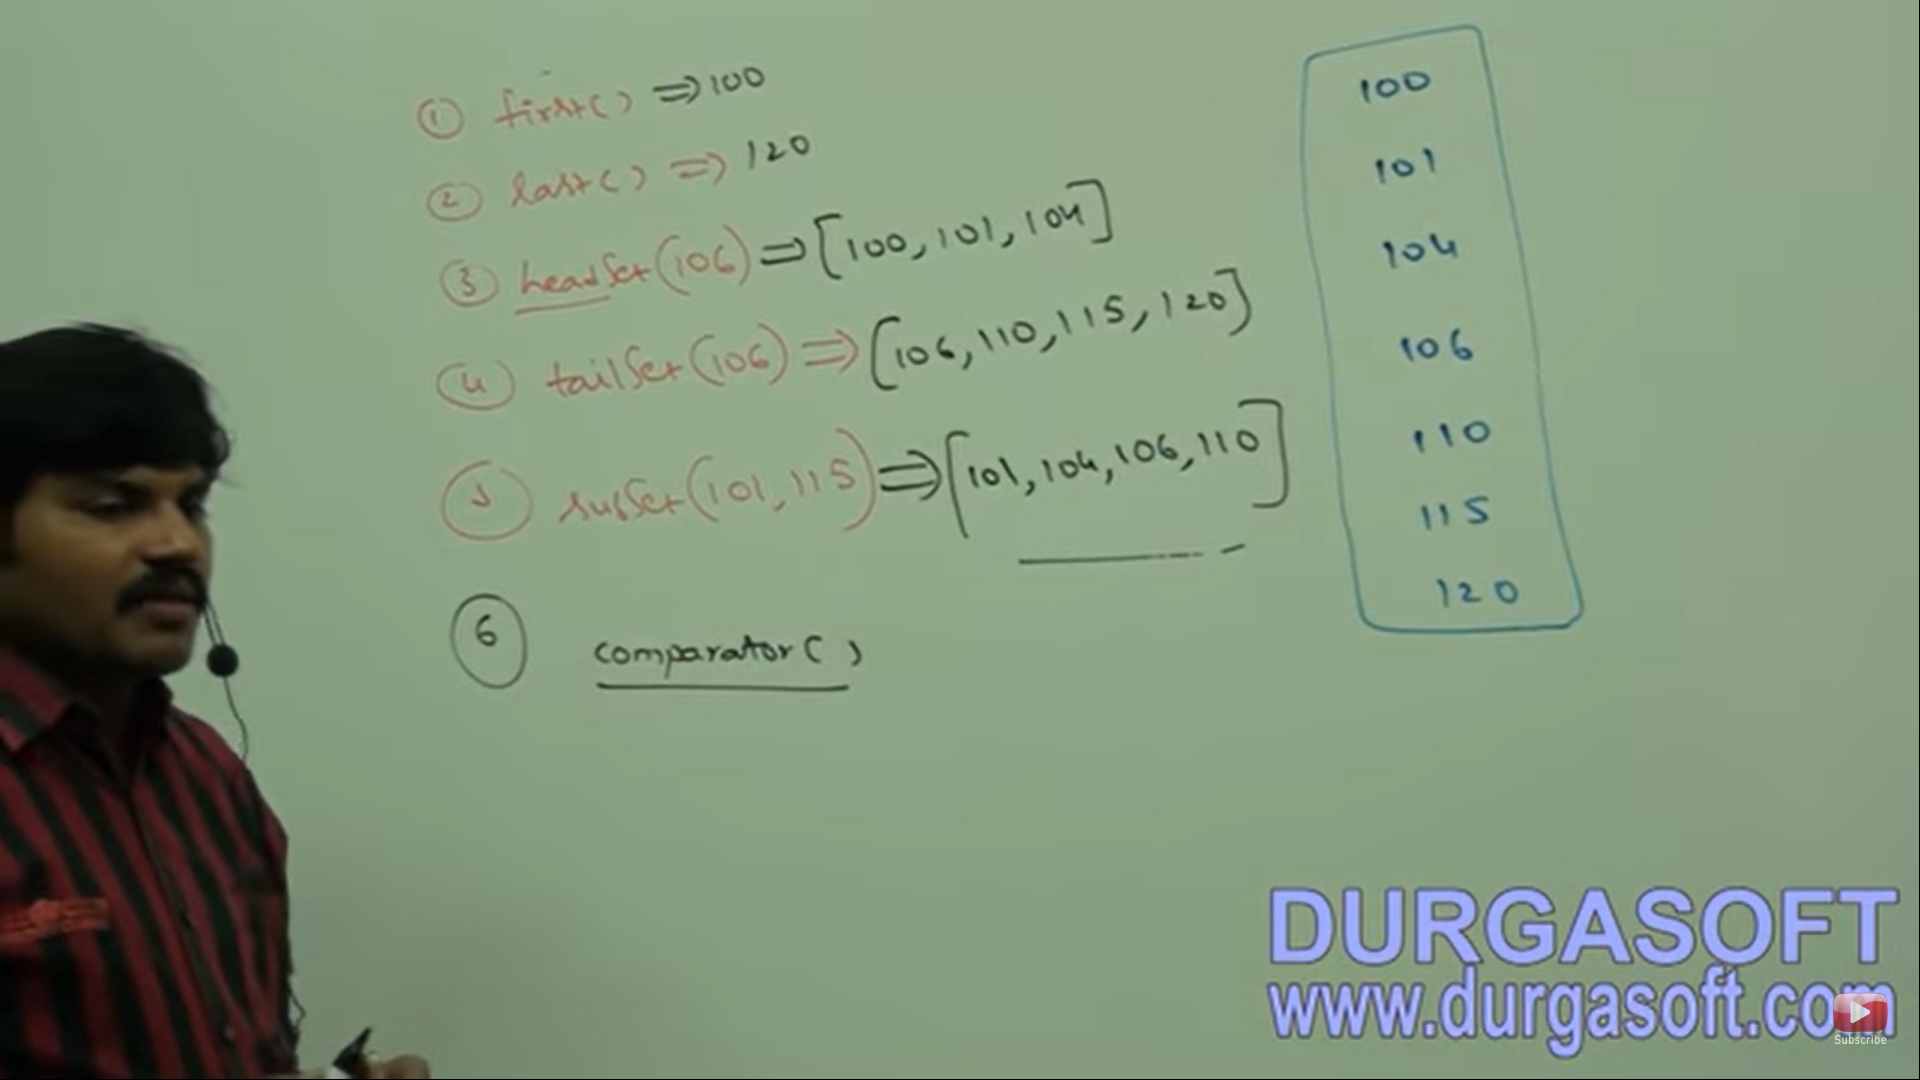 ① first() ⇒ 100
② last() ⇒ 120
③ headSet(106) ⇒ [100, 101, 104]
④ tailSet(106) ⇒ [106, 110, 115, 120]
⑤ subSet(101, 115) ⇒ [101, 104, 106, 110]
⑥ comparator()
100
101
104
106
110
115
120
DURGASOFT
www.durgasoft.co
Subscribe